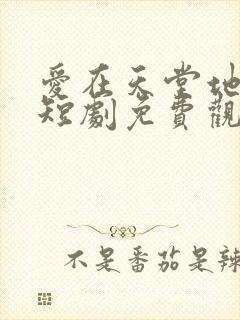 愛在天堂地
短劇免費觀
不是番茄是辣